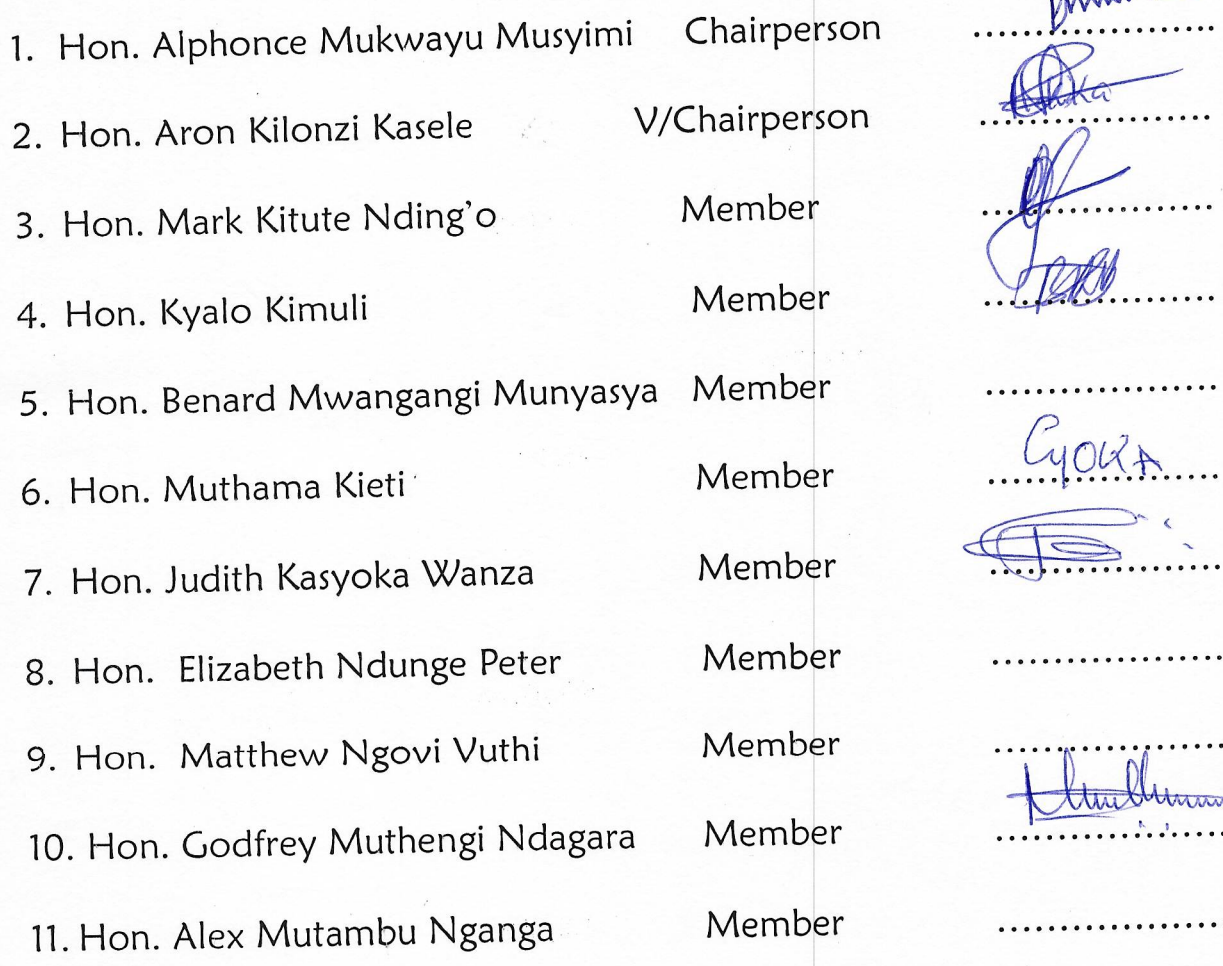 1. Hon. Alphonce Mukwayu Musyimi Chairperson ....................
2. Hon. Aron Kilonzi Kasele V/Chairperson ....................
3. Hon. Mark Kitute Nding'o Member ....................
4. Hon. Kyalo Kimuli Member ....................
5. Hon. Benard Mwangangi Munyasya Member ....................
6. Hon. Muthama Kieti Member ....................
7. Hon. Judith Kasyoka Wanza Member ....................
8. Hon. Elizabeth Ndunge Peter Member ....................
9. Hon. Matthew Ngovi Vuthi Member ....................
10. Hon. Godfrey Muthengi Ndagara Member ....................
11. Hon. Alex Mutambu Nganga Member ....................